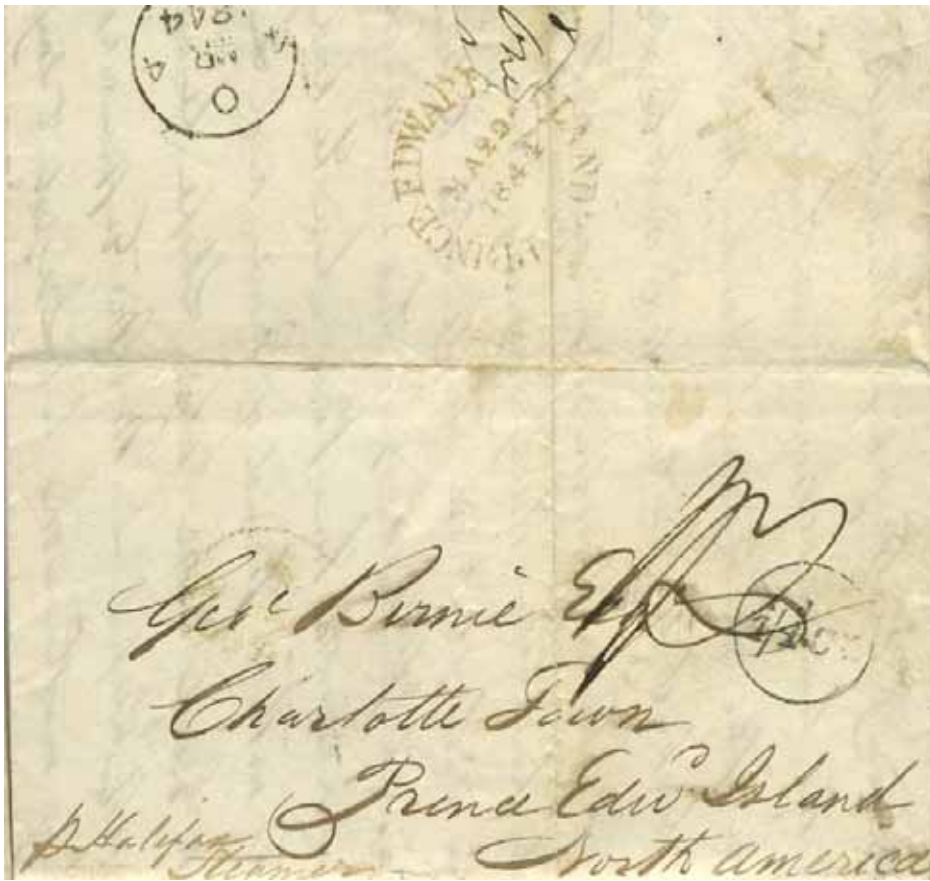 PRINCE EDWARD ISLAND
MR
4
O
Geo. Birnie Esqr
Charlotte Town
Prince Edwd Island
North America
p Halifax
Steamer